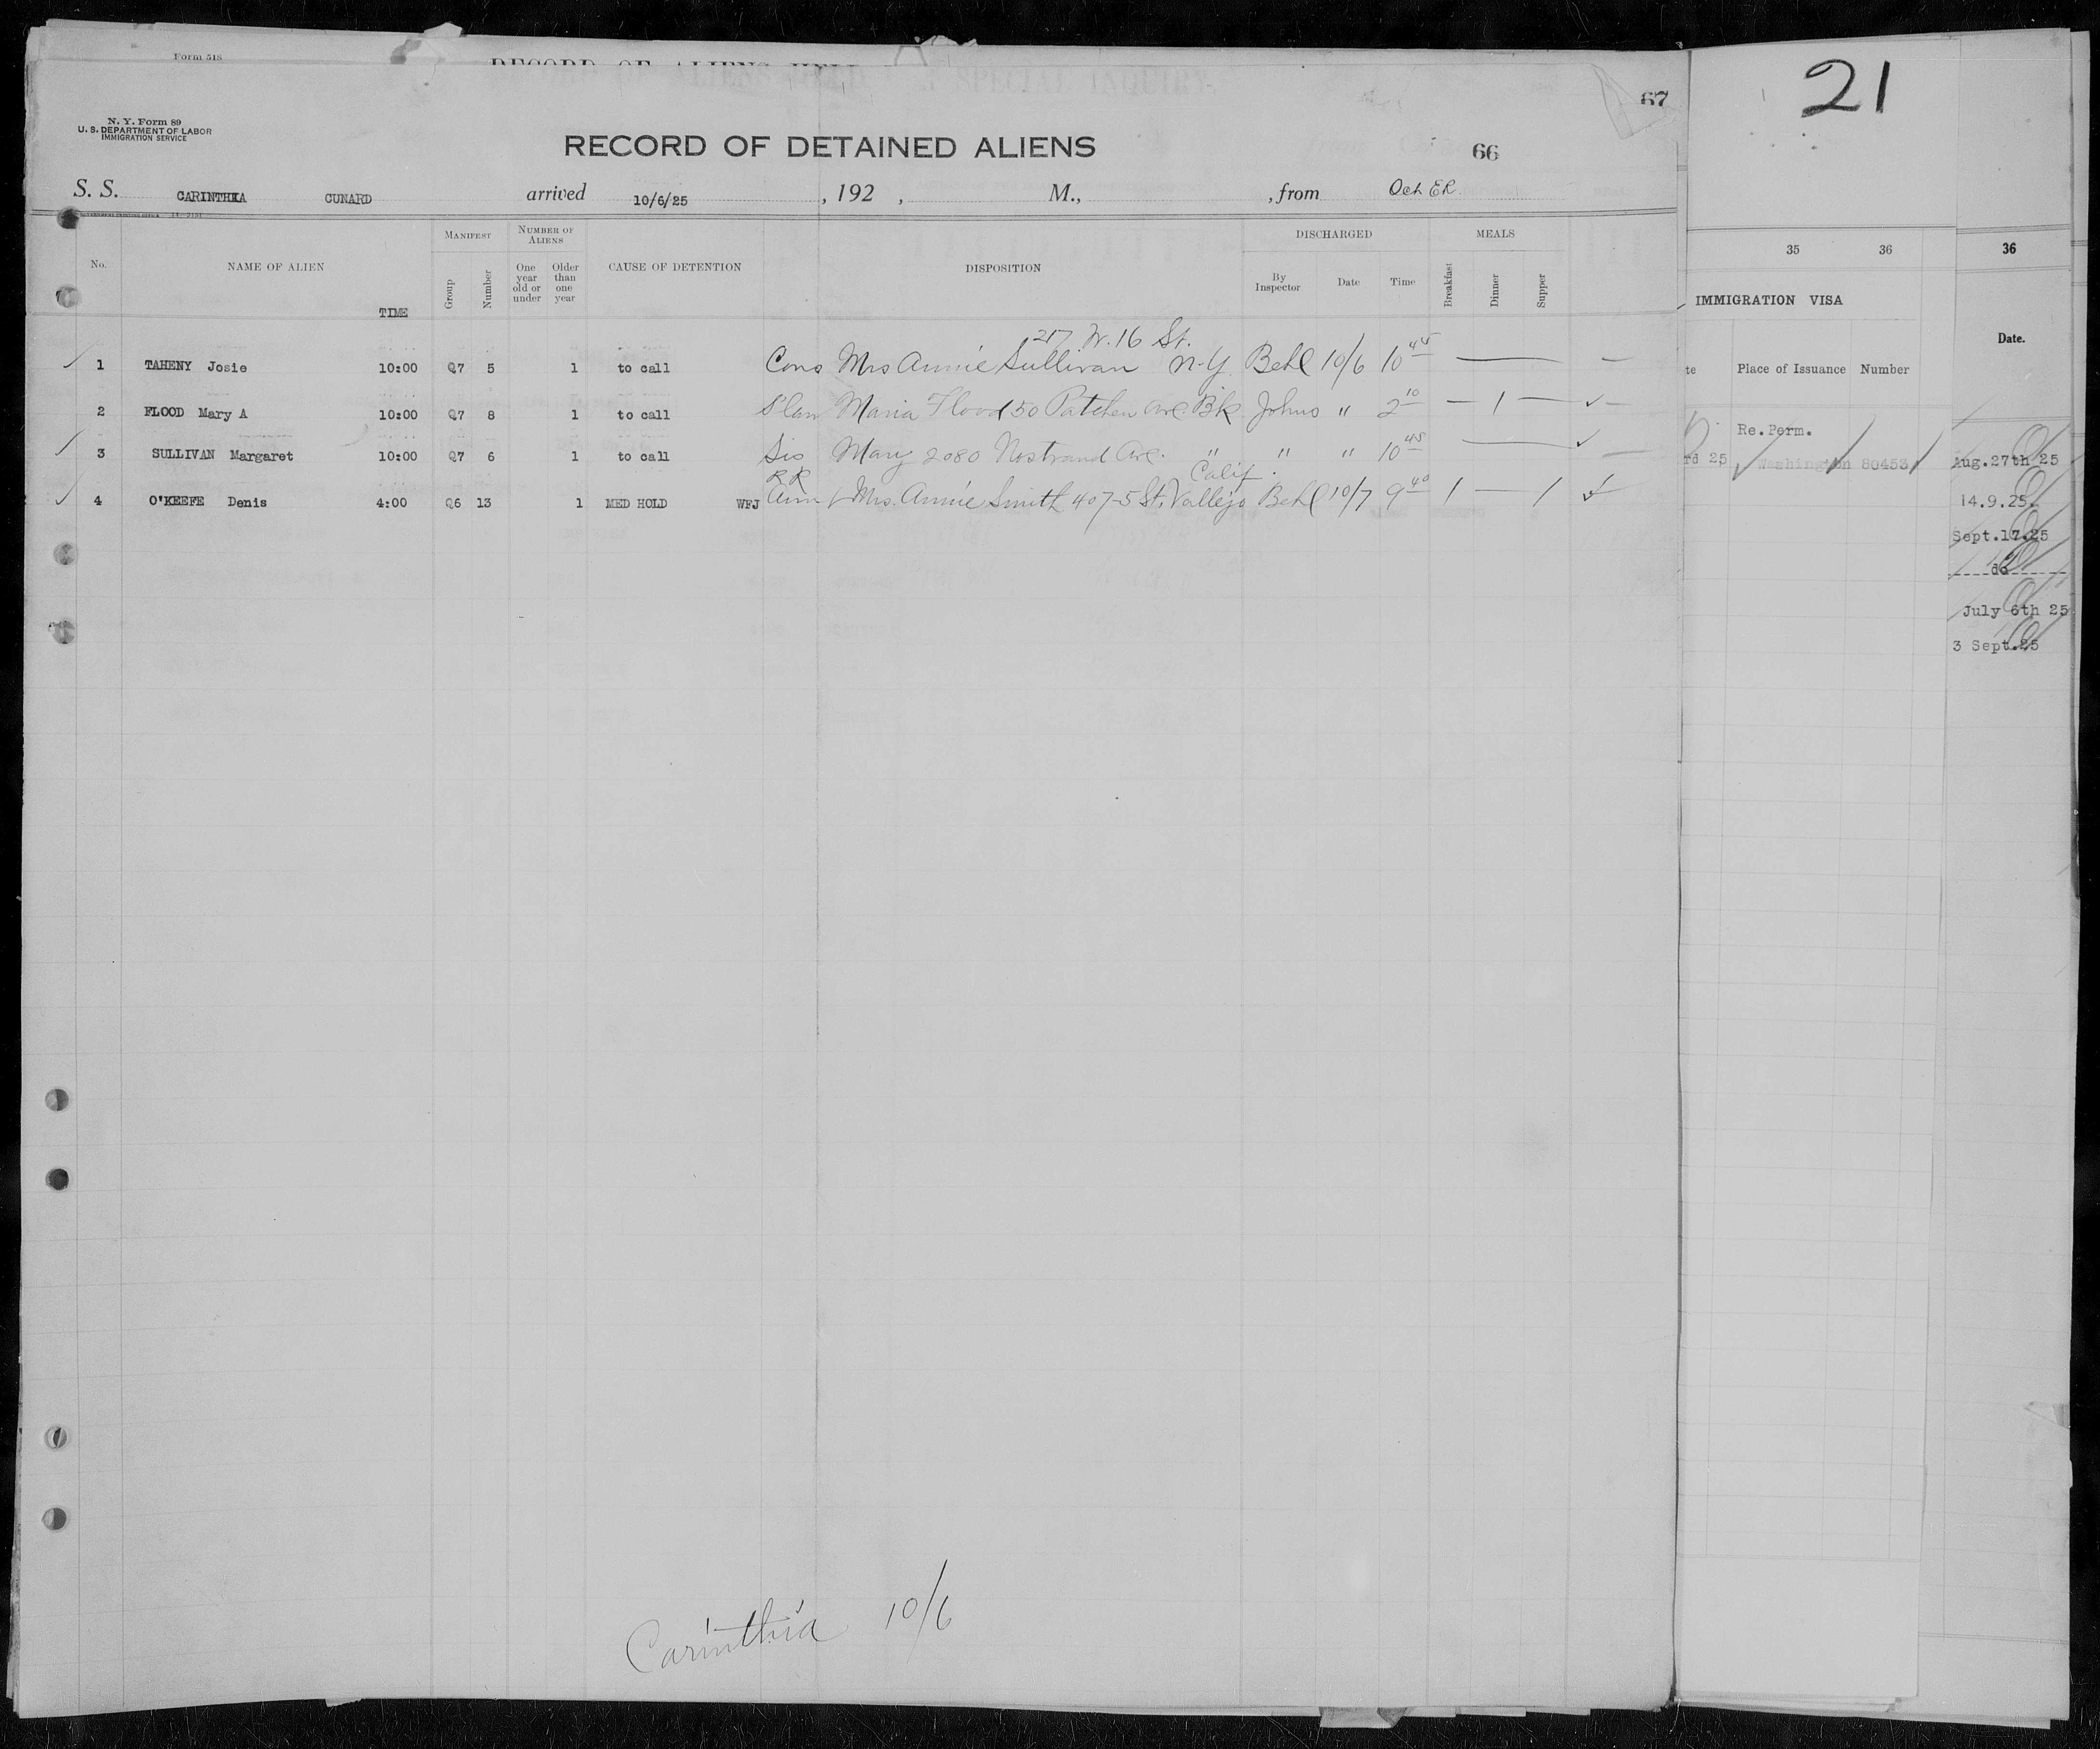 Form 518
RECORD OF ALIENS HELD
SPECIAL INQUIRY
67
21
N. Y. Form 89
U. S. DEPARTMENT OF LABOR
IMMIGRATION SERVICE
RECORD OF DETAINED ALIENS
66
S. S. CARINTHIA CUNARD arrived 10/6/25, 192 , M., , from Och ER.
No. NAME OF ALIEN TIME MANIFEST Group Number NUMBER OF ALIENS One year old or under Older than one year CAUSE OF DETENTION DISPOSITION DISCHARGED By Inspector Date Time MEALS Breakfast Dinner Supper
217 W. 16 St.
1 TAHENY Josie 10:00 Q7 5 1 to call Cons Mrs Annie Sullivan N.Y. Behl 10/6 10 45 —
2 FLOOD Mary A 10:00 Q7 8 1 to call Slaw Maria Flood 50 Patchen Ave Bk Johns " 2 10 — 1 — ✓ —
3 SULLIVAN Margaret 10:00 Q7 6 1 to call Sis Mary 2080 Nostrand Ave. " " " 10 45 — ✓ —
RR Calif.
4 O'KEEFE Denis 4:00 Q6 13 1 MED HOLD WFJ Aunt Mrs. Annie Smith 407-5 St. Vallejo Behl 10/7 9 40 1 — 1
Carinthia 10/6
35 36
IMMIGRATION VISA
te Place of Issuance Number
Re.Perm.
rd 25 Washington 80453
36
Date.
Aug.27th 25
14.9.25.
Sept.17.25
do
July 6th 25
3 Sept.25